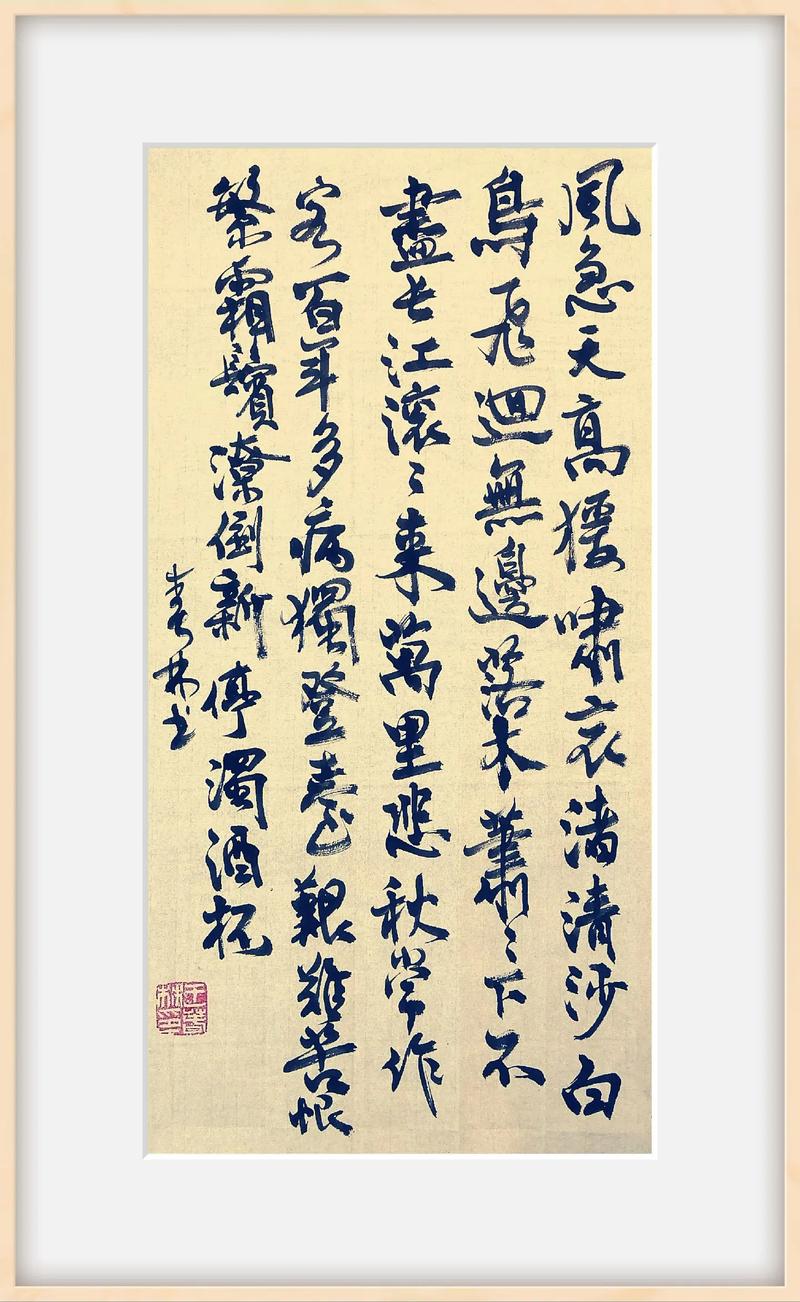 風急天高猿嘯哀渚清沙白
鳥飛迴無邊落木蕭〻下不
盡長江滾〻来萬里悲秋常作
客百年多病獨登臺艱難苦恨
繁霜鬢潦倒新停濁酒杯
林书